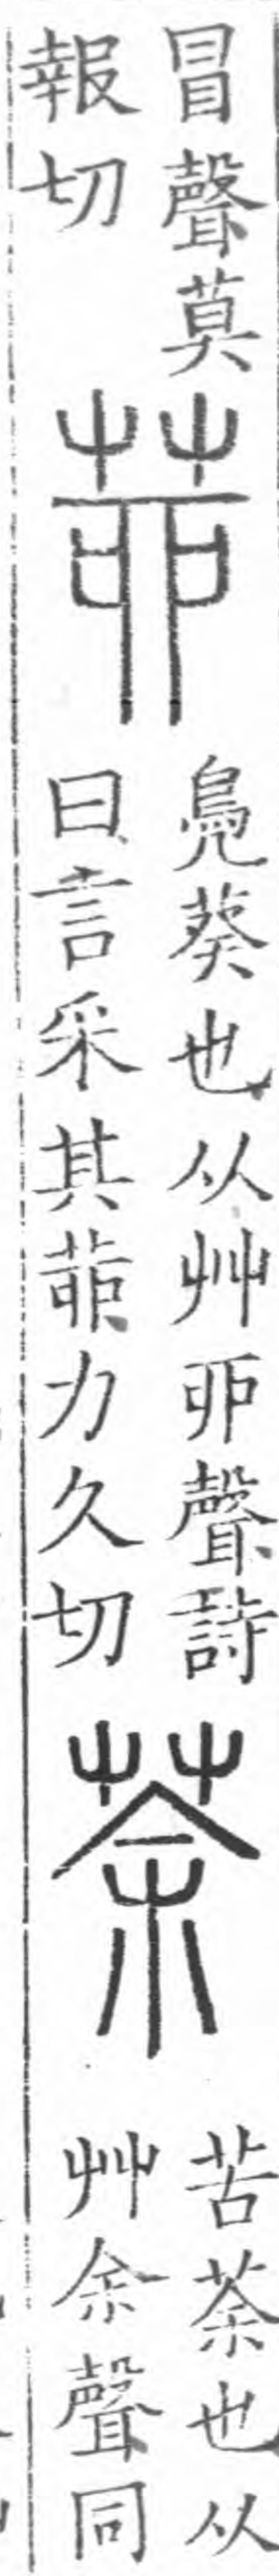 冒聲莫
報切
茆
鳧葵也从艸丣聲詩
曰言采其茆力久切
荼
苦荼也从
艸余聲同